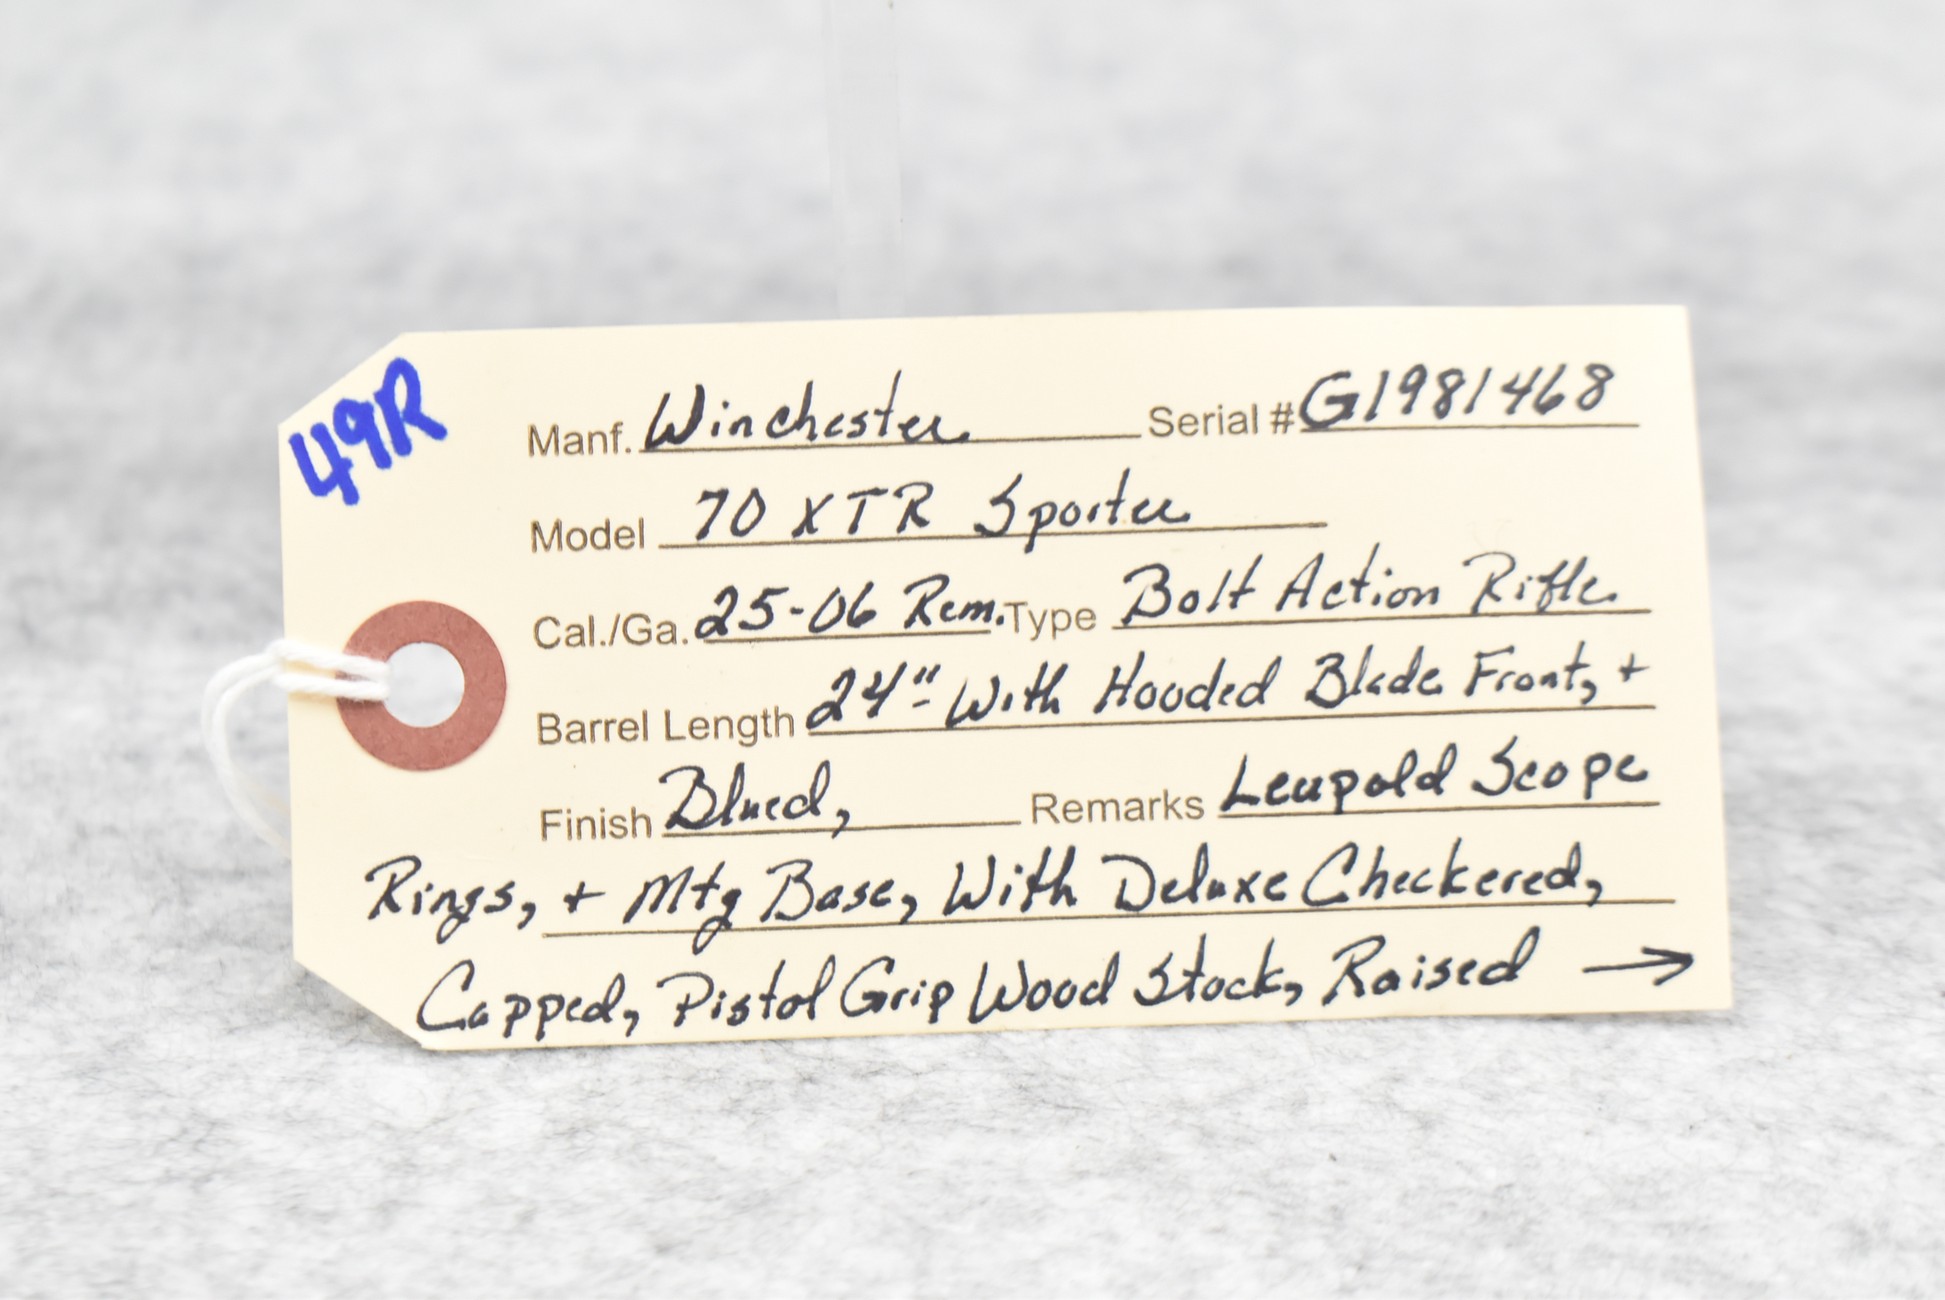 49R
Manf. Winchester Serial # G1981468
Model 70 XTR Sporter
Cal./Ga. 25-06 Rem. Type Bolt Action Rifle
Barrel Length 24"- With Hooded Blade Front, +
Finish Blued, Remarks Leupold Scope
Rings, + Mtg Base, With Deluxe Checkered,
Capped, Pistol Grip Wood Stock, Raised →